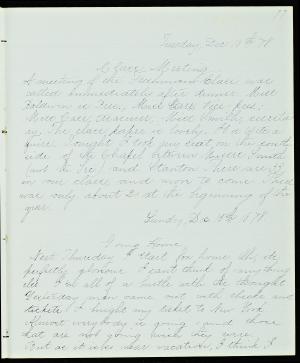 Tuesday, Dec 10th 78
Class Meeting.
A meeting of the Freshman Class was
called immediately after dinner. Miss
Baldwin is Pres; Miss Case Vice Pres;
The class paper is lovely. It is quite a
Tonight I took my seat on the south
side of the Chapel between Miss Smith
(not the Pres) and Stanton. There are 37
in our class and soon to come. There
was only about 25 at the beginning of the
year.
Sunday, Dec 15th 1878.
Going Home.
Next Thursday I start for home. It is
perfectly glorious I can't think of anything
else. I'm all of a bustle with the thought
Yesterday men came out with checks and
tickets. I bought my ticket to New York
Almost everybody is going and those
that are not going wish they were.
But as it is near vacation, I think I